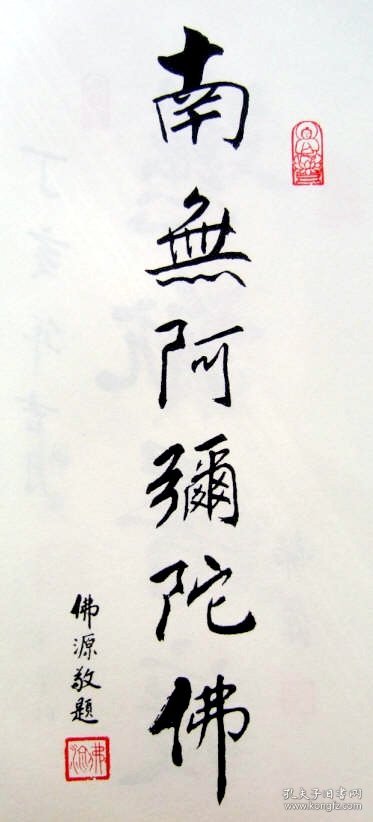 南無阿彌陀佛
佛源敬題
佛源
孔夫子旧书网
www.kongfz.com